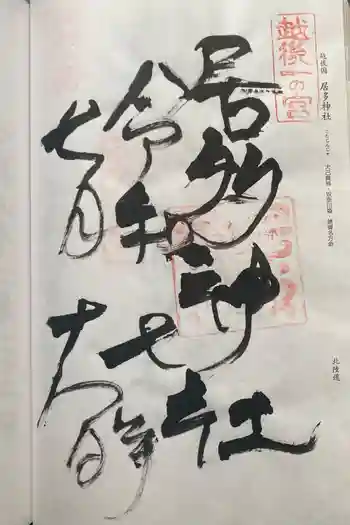 越後国 居多神社 大己貴命・奴奈川姫・建御名方命
北陸道
越後一の宮
居多神社
令和七年
七月十六日